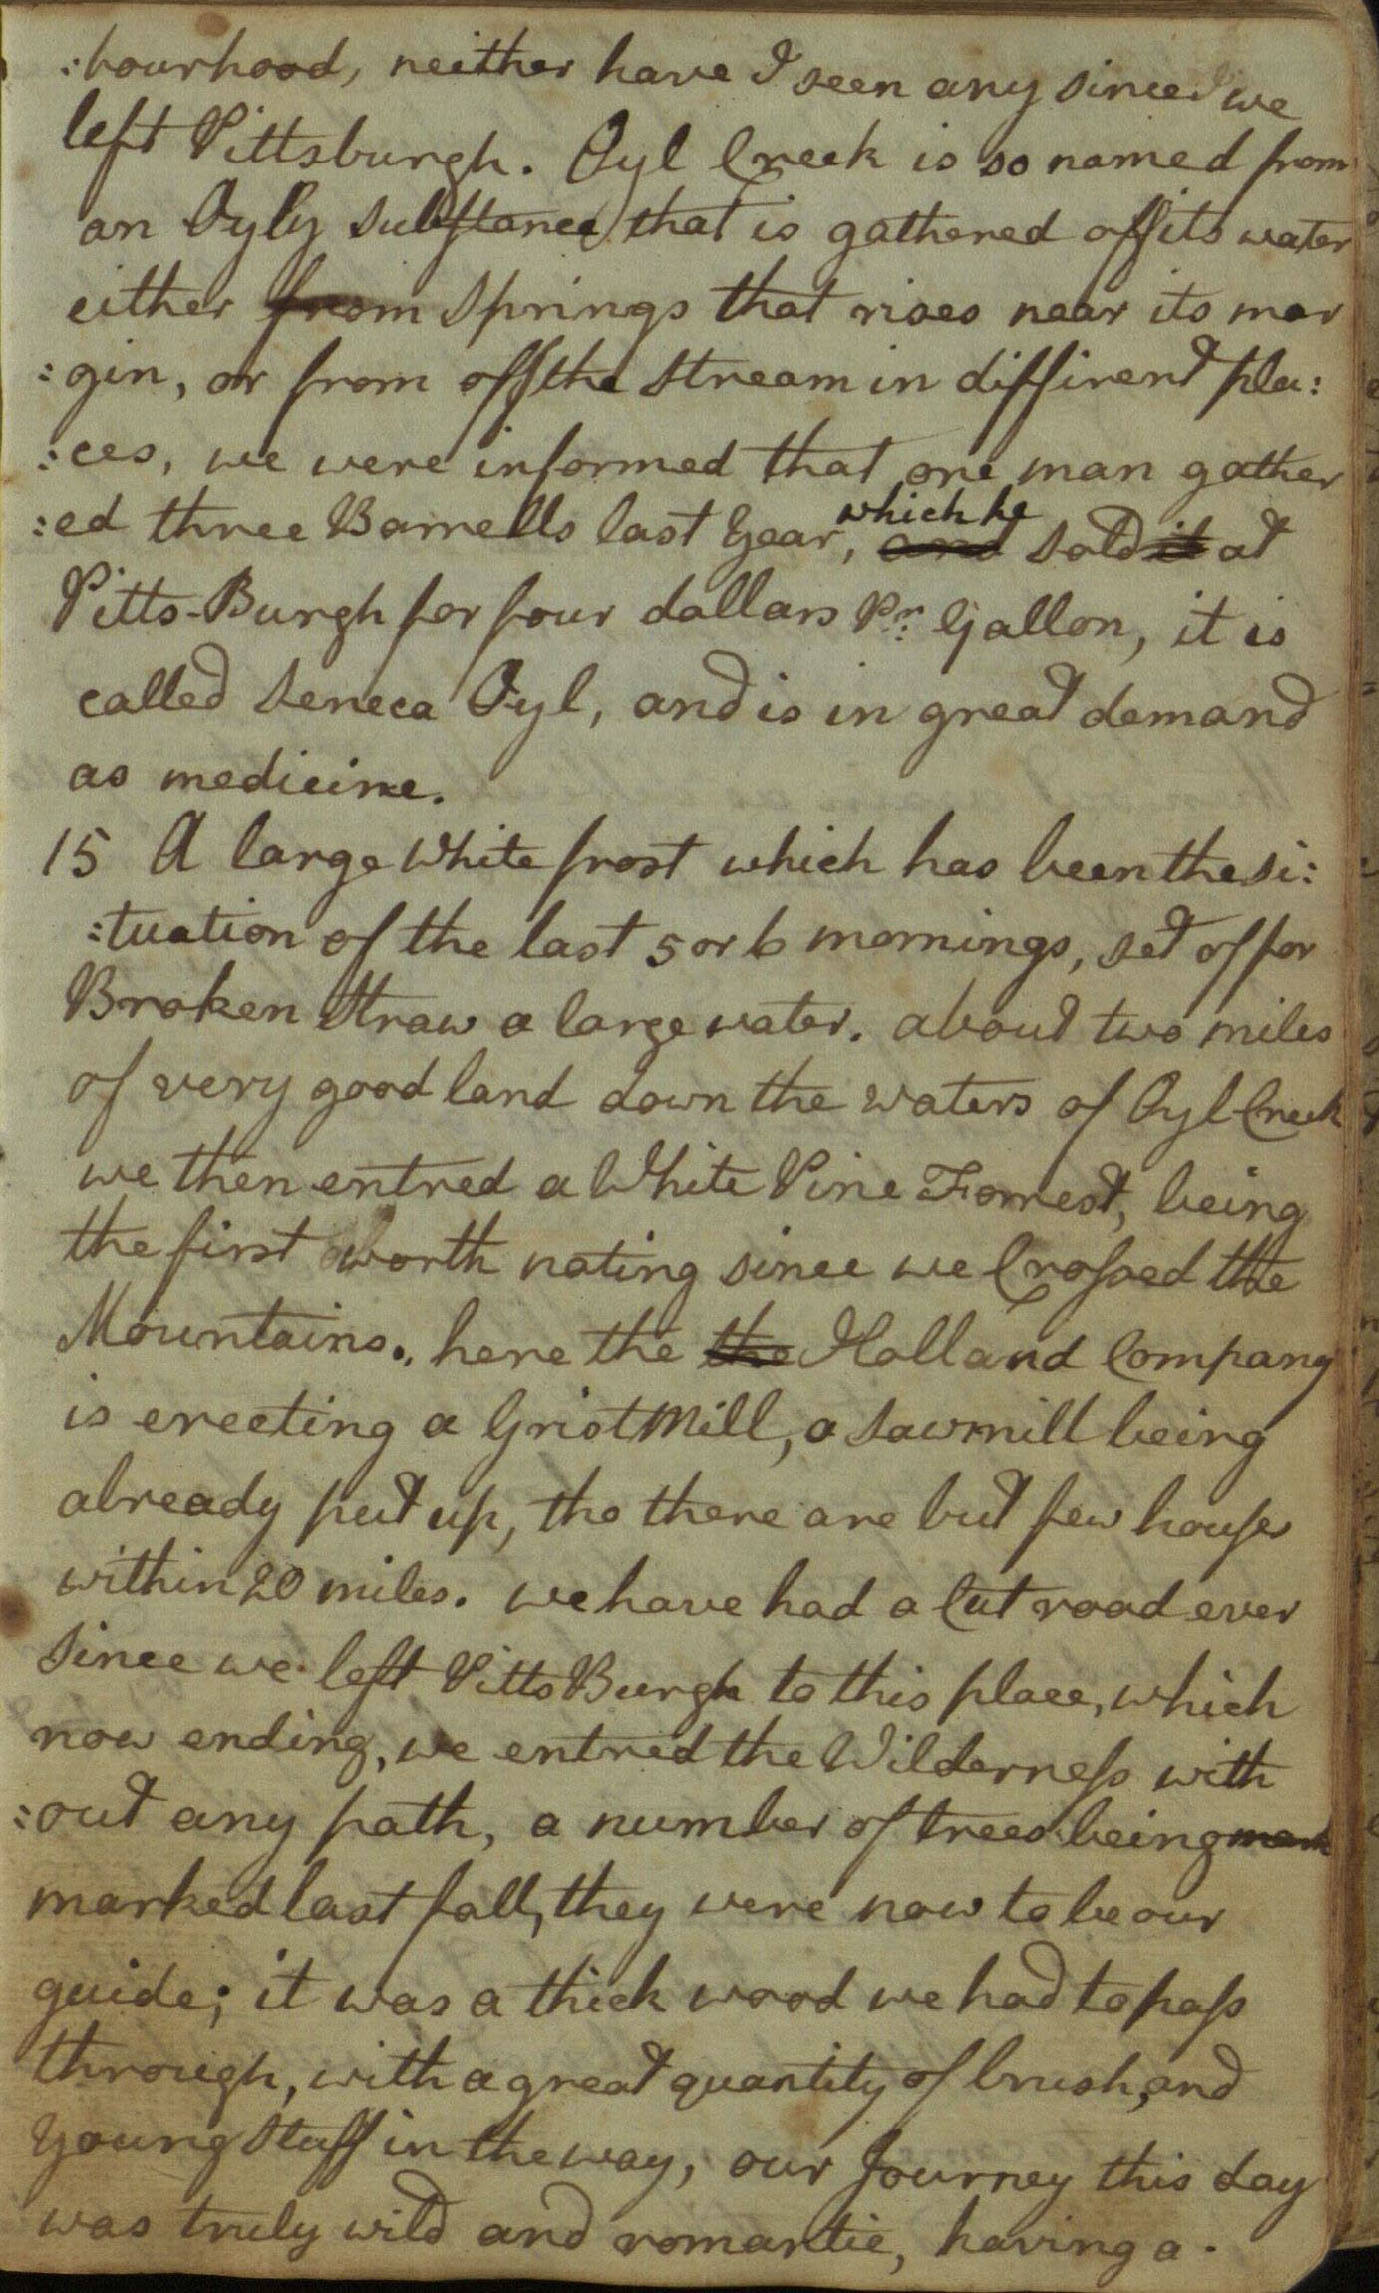 :bourhood, neither have I seen any since we
left Pittsburgh. Oyl Creek is so named from
an Oyly Substance that is gathered off its water
either from Springs that rises near its mar
:gin, or from off the Stream in diffirent pla:
:ces, we were informed that one man gather
:ed three Barrells last Year, and which he sold it at
Pitts-Burgh for four dallars Pr: Gallon, it is
called Seneca Oyl, and is in great demand
as medicine.
15 A large White frost which has been the si:
:tuation of the last 5 or 6 mornings, set of for
Broken Straw a large water. about two miles
of very good land down the waters of Oyl Creek
we then entred a White Pine Forrest, being
the first worth noting since we Crossed the
Mountains., here the the Holland Company
is erecting a Grist Mill, a Sawmill being
already put up, tho there are but few houses
within 20 miles. we have had a Cut road ever
since we left Pitts Burgh to this place, which
now ending, we entred the Wilderness with
:out any path, a number of trees being mark
marked last fall, they were now to be our
guide; it was a thick wood we had to pass
through, with a great quantity of brush, and
Young Stuff in the way, our Journey this day
was truly wild and romantic, having a